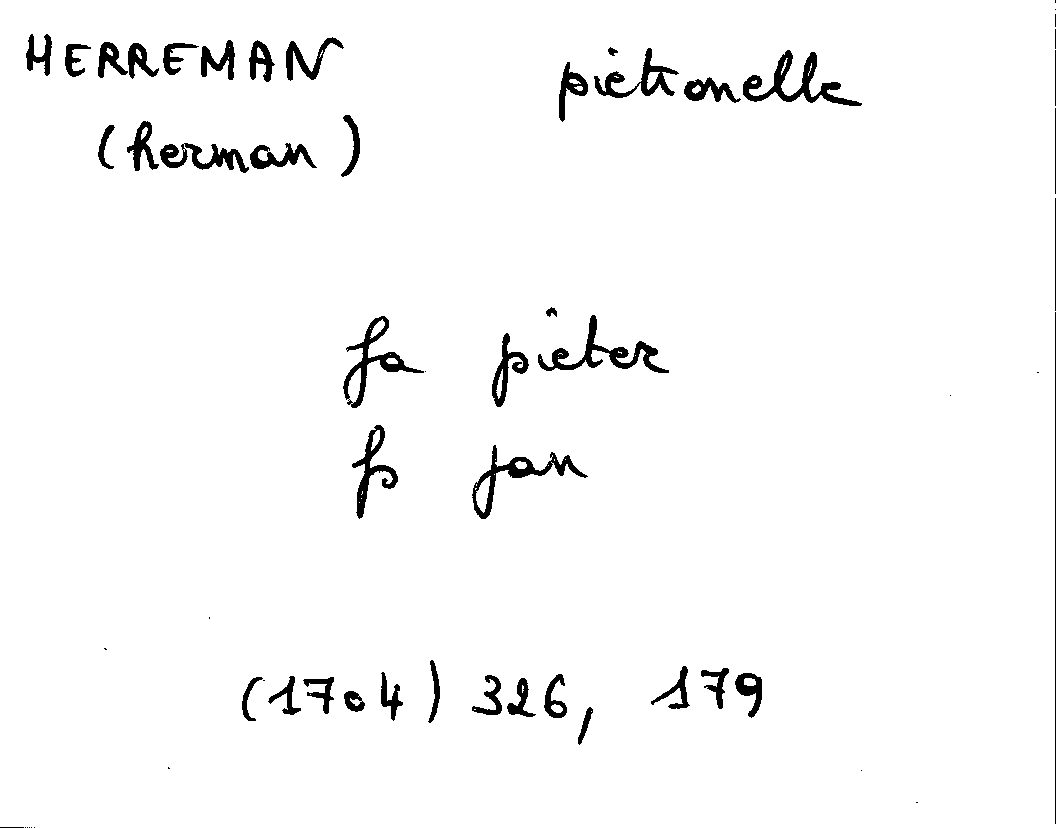 HERREMAN pietronelle
(herman)
fa pieter
fs jan
(1704) 326, 179